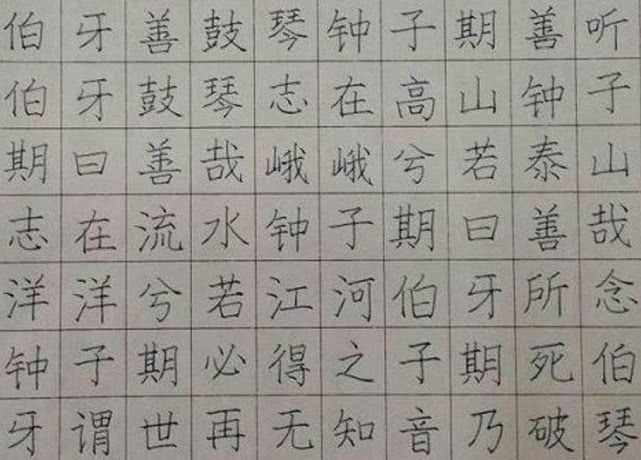 伯牙善鼓琴钟子期善听
伯牙鼓琴志在高山钟子
期曰善哉峨峨兮若泰山
志在流水钟子期曰善哉
洋洋兮若江河伯牙所念
钟子期必得之子期死伯
牙谓世再无知音乃破琴